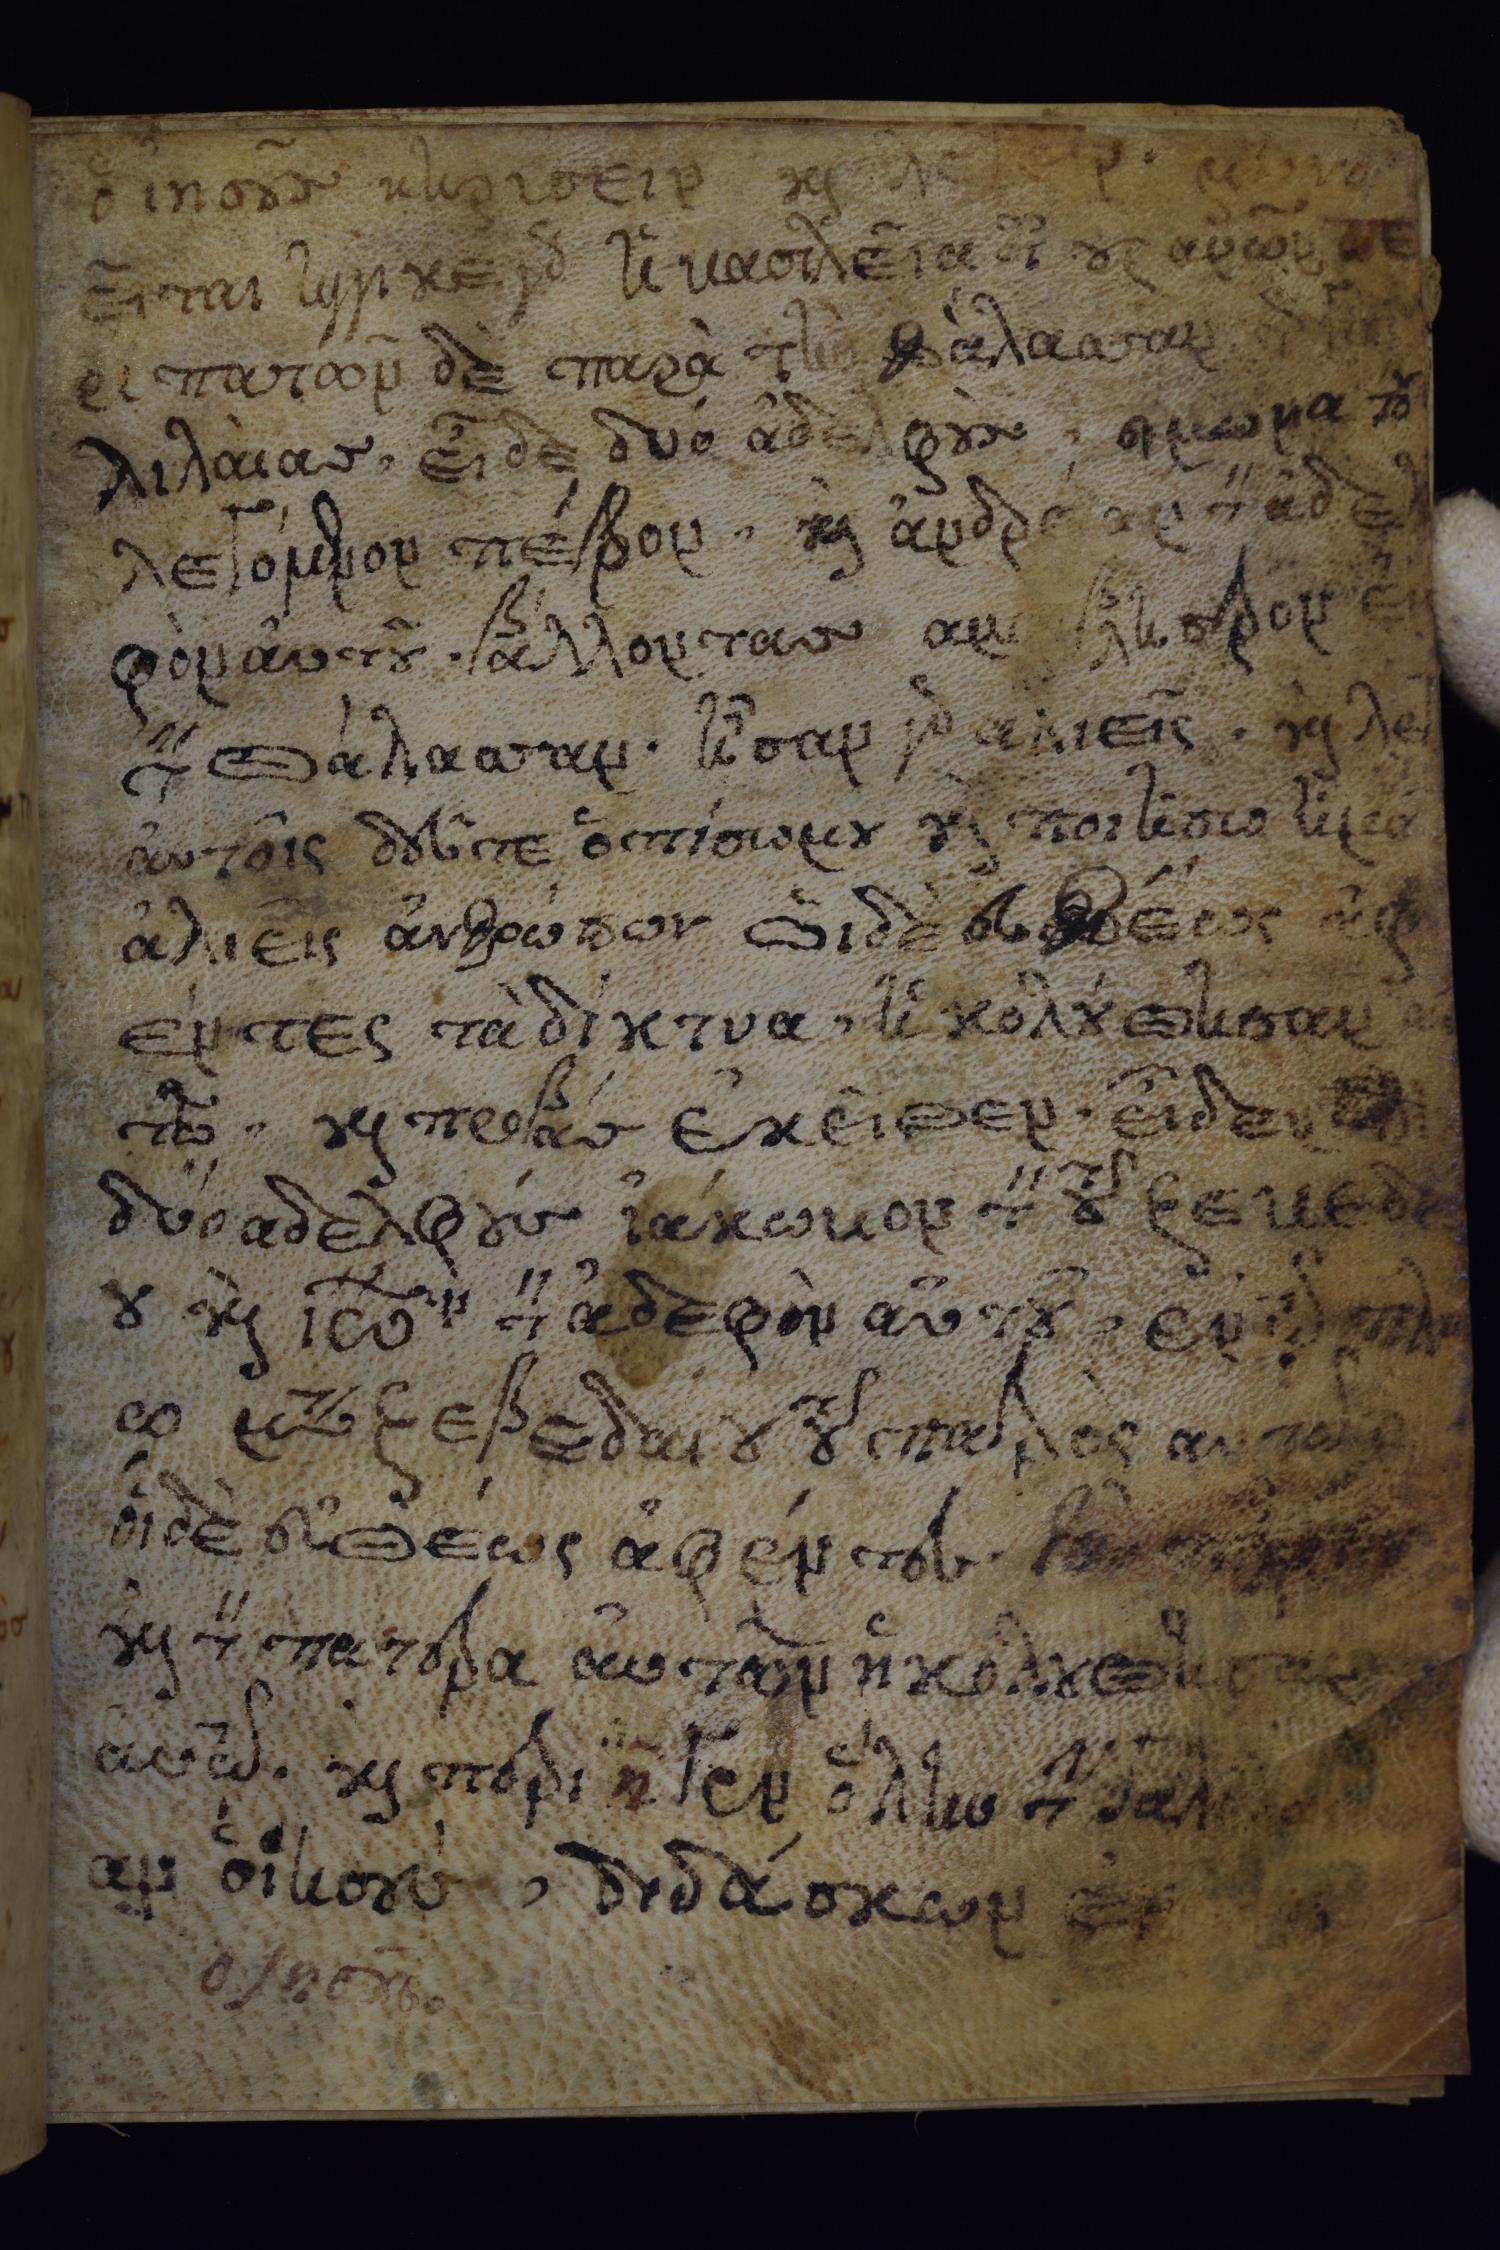 ὁ ἰησοῦς κηρύσειν κ(αὶ) λέγειν·
ἤγγικεν ἡ βασιλεῖα κ(αὶ) οὐρανῶν πε
ριπατῶν δὲ παρὰ τὴν θάλασσαν
λιλαίας, εἶδε δύο ἀδελφοὺς, σίμωνα τὸ(ν)
λεγόμενον πέτρον, κ(αὶ) ἀνδρέαν τ(ὸν) ἀδελ
φὸν αὐτοῦ· βάλλοντας ἀμφίβληστρον εἰς
τ(ὴν) θάλασσαν· ἦσαν γὰρ ἁλιεῖς· κ(αὶ) λέ
αὐτοῖς δεῦτε ὀπίσω μου κ(αὶ) ποιήσω ὑμᾶ
ἁλιεῖς ἀνθρώπων Οἱ δὲ εὐθέως ἀφ
έντες τὰ δίκτυα, ἠκολούθησαν αὐ
τῶ, κ(αὶ) προβὰς ἐκεῖθεν· εἶδεν
δύο ἀδελφοὺς ἰάκωβον τ(ὸν) τοῦ ζεβεδε
ου κ(αὶ) ἰω(άννη)ν τ(ὸν) ἀδεφὸν αὐτοῦ, ἐν τῶ πλοί
ω μετὰ ζεβεδαίου τοῦ πατρὸς αὐτῶν
οἱ δὲ εὐθέως ἀφέντες·
κ(αὶ) τ(ὸν) πατέρα αὐτῶν ἠκολούθησαν
αὐτῶ. κ(αὶ) περιῆγεν ὅλην τ(ὴν) γαλι
αν ὁ ἰησοῦς, διδάσκων ἐν
ὁ ἰησοῦς.